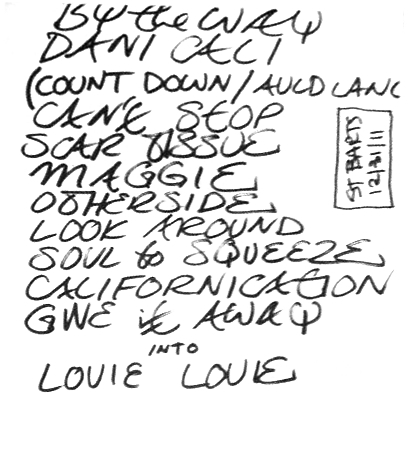 By the WAY
DANI CALI
(COUNT DOWN/AULD LANG
CAN't STOP
SCAR TISSUE
MAGGIE
OtHERSIDE
LOOK AROUND
SOUL to SQUEEZE
CALIFORNICAtION
GIVE it AWAY
INTO
LOUIE LOUIE
ST BARTS
12/31/11